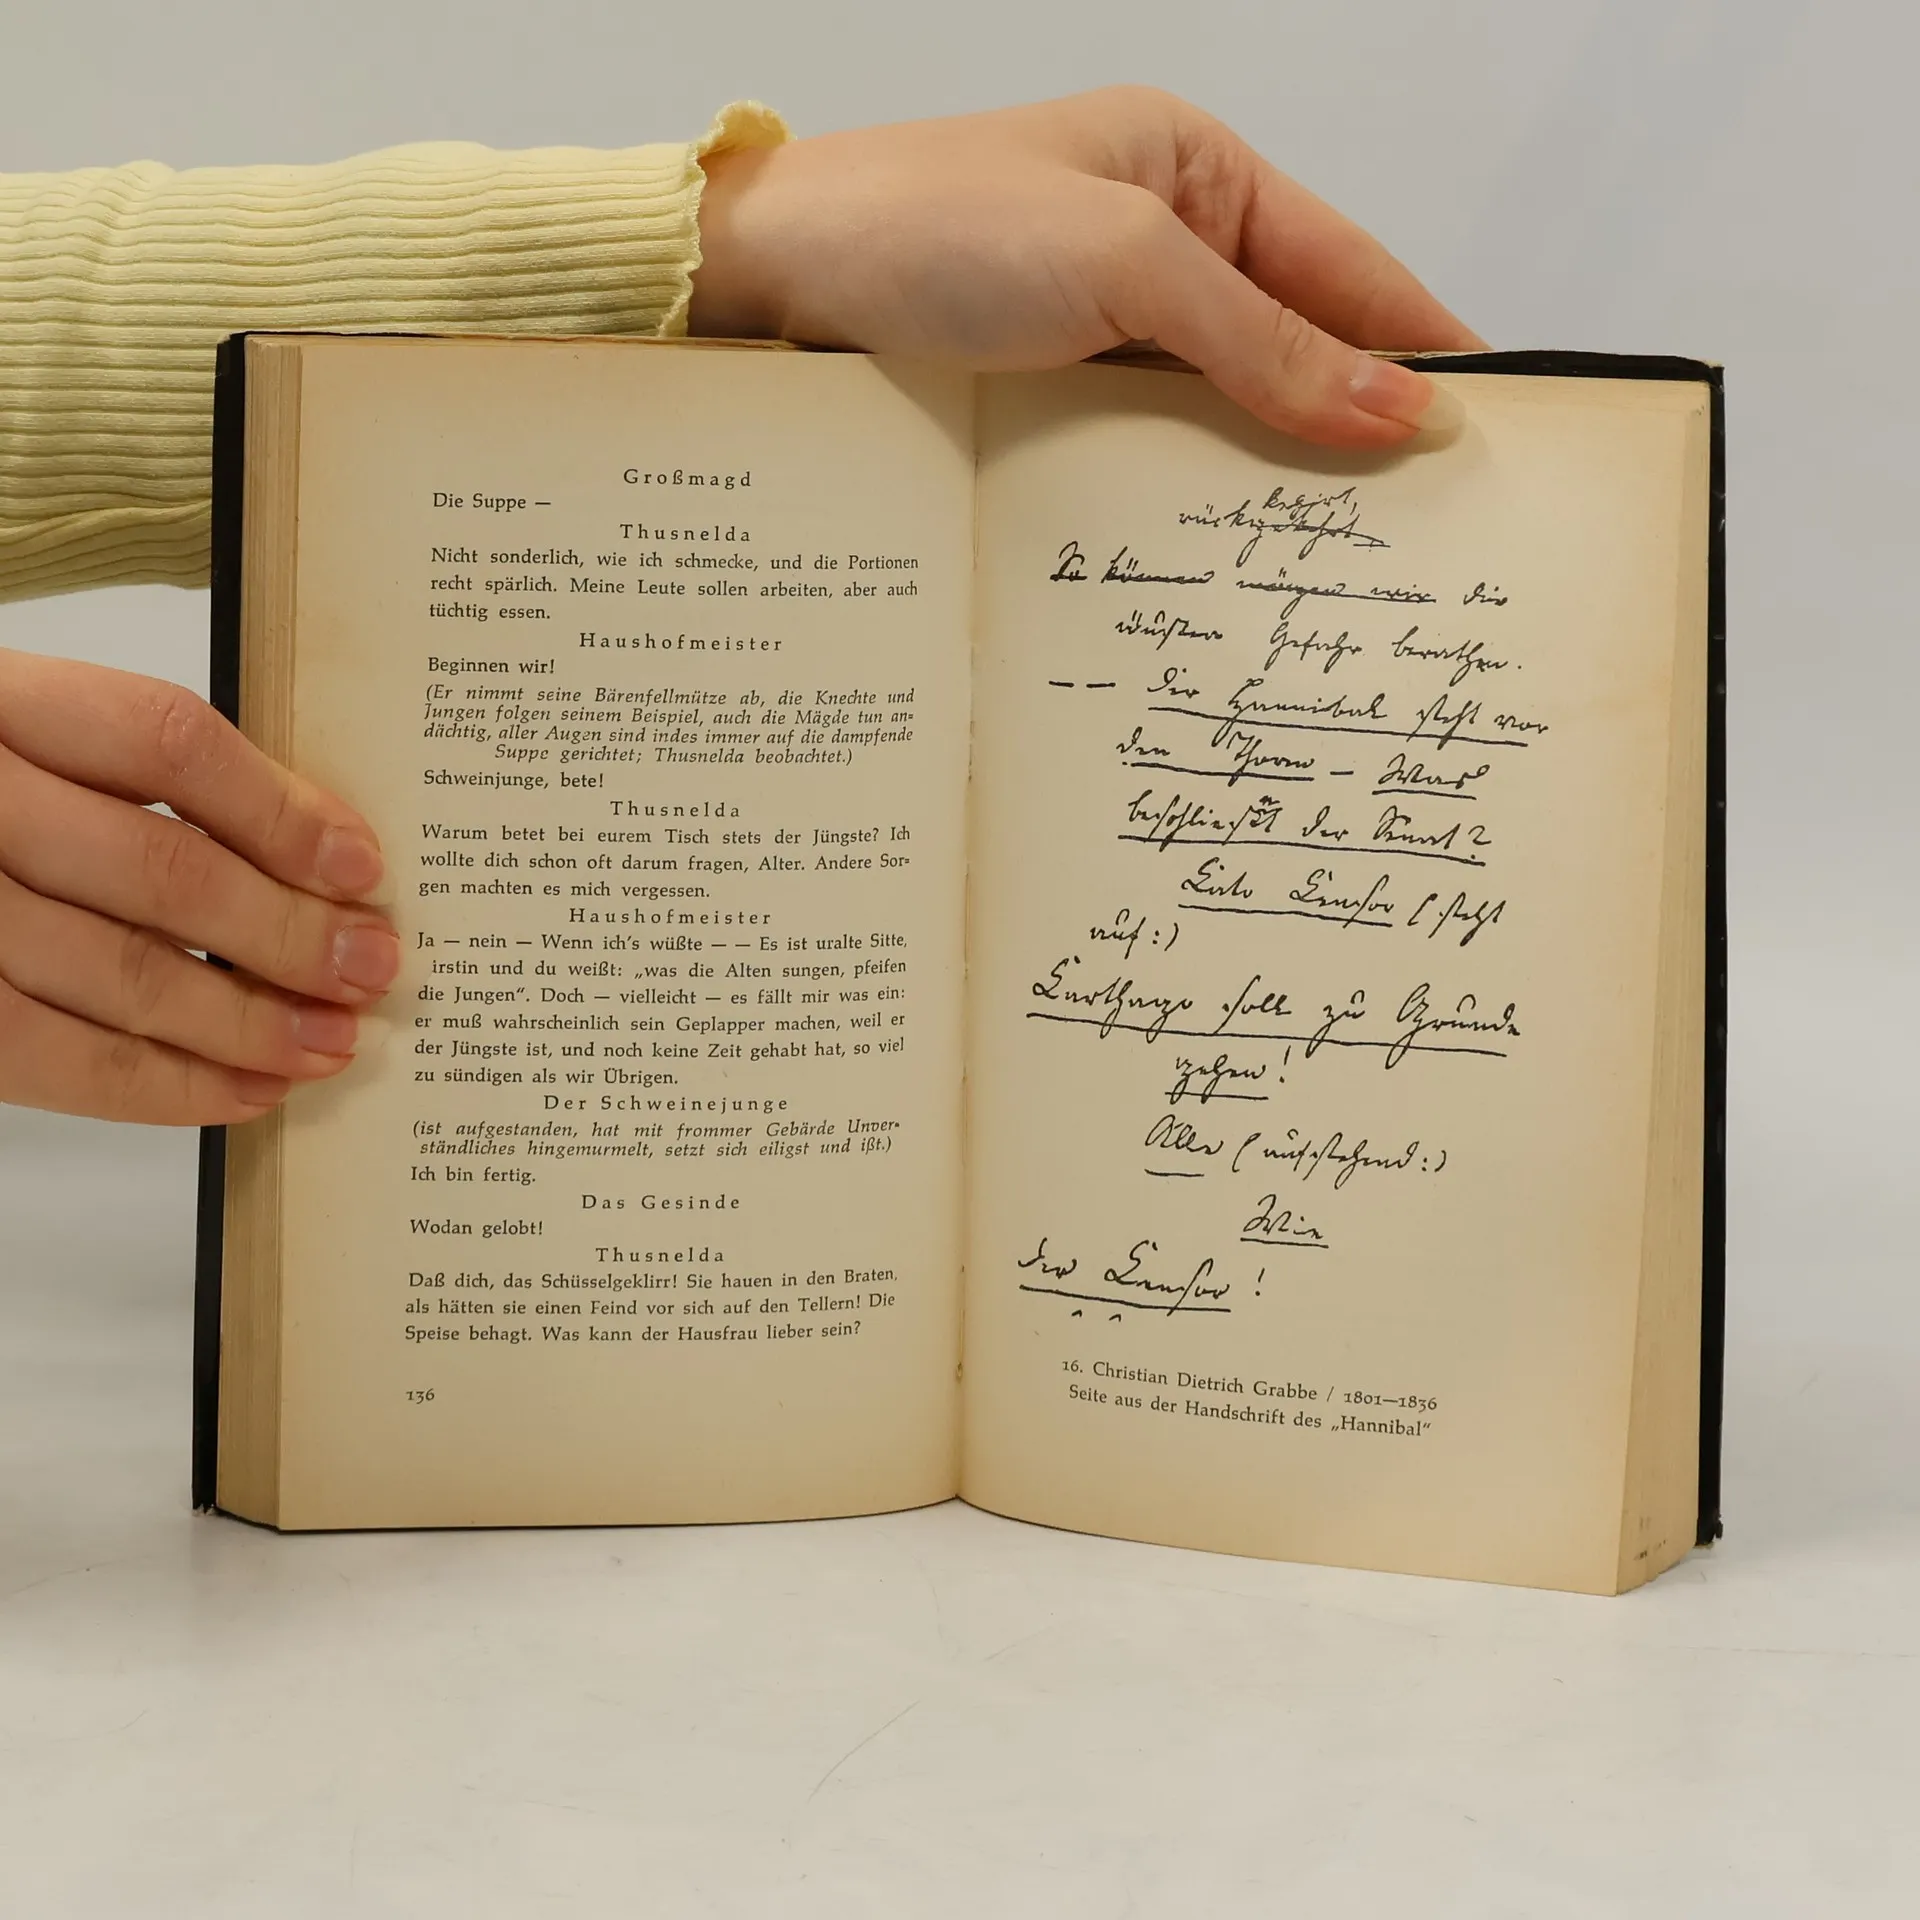 Großmagd
Die Suppe —
Thusnelda
Nicht sonderlich, wie ich schmecke, und die Portionen
recht spärlich. Meine Leute sollen arbeiten, aber auch
tüchtig essen.
Haushofmeister
Beginnen wir!
(Er nimmt seine Bärenfellmütze ab, die Knechte und
Jungen folgen seinem Beispiel, auch die Mägde tun an=
dächtig, aller Augen sind indes immer auf die dampfende
Suppe gerichtet; Thusnelda beobachtet.)
Schweinjunge, bete!
Thusnelda
Warum betet bei eurem Tisch stets der Jüngste? Ich
wollte dich schon oft darum fragen, Alter. Andere Sor=
gen machten es mich vergessen.
Haushofmeister
Ja — nein — Wenn ich's wüßte — — Es ist uralte Sitte,
irstin und du weißt: „was die Alten sungen, pfeifen
die Jungen“. Doch — vielleicht — es fällt mir was ein:
er muß wahrscheinlich sein Geplapper machen, weil er
der Jüngste ist, und noch keine Zeit gehabt hat, so viel
zu sündigen als wir Übrigen.
Der Schweinejunge
(ist aufgestanden, hat mit frommer Gebärde Unver=
ständliches hingemurmelt, setzt sich eiligst und ißt.)
Ich bin fertig.
Das Gesinde
Wodan gelobt!
Thusnelda
Daß dich, das Schüsselgeklirr! Sie hauen in den Braten,
als hätten sie einen Feind vor sich auf den Tellern! Die
Speise behagt. Was kann der Hausfrau lieber sein?
136
So können mögen wir die
Gefahr berathen.
— — Der Hannibal steht vor
den Thoren — Was
der Senat?
Cato Censor (steht
auf:)
Carthago soll zu Grunde
gehen!
Alle (aufstehend:)
Wie
der Censor!
16. Christian Dietrich Grabbe / 1801—1836
Seite aus der Handschrift des „Hannibal“